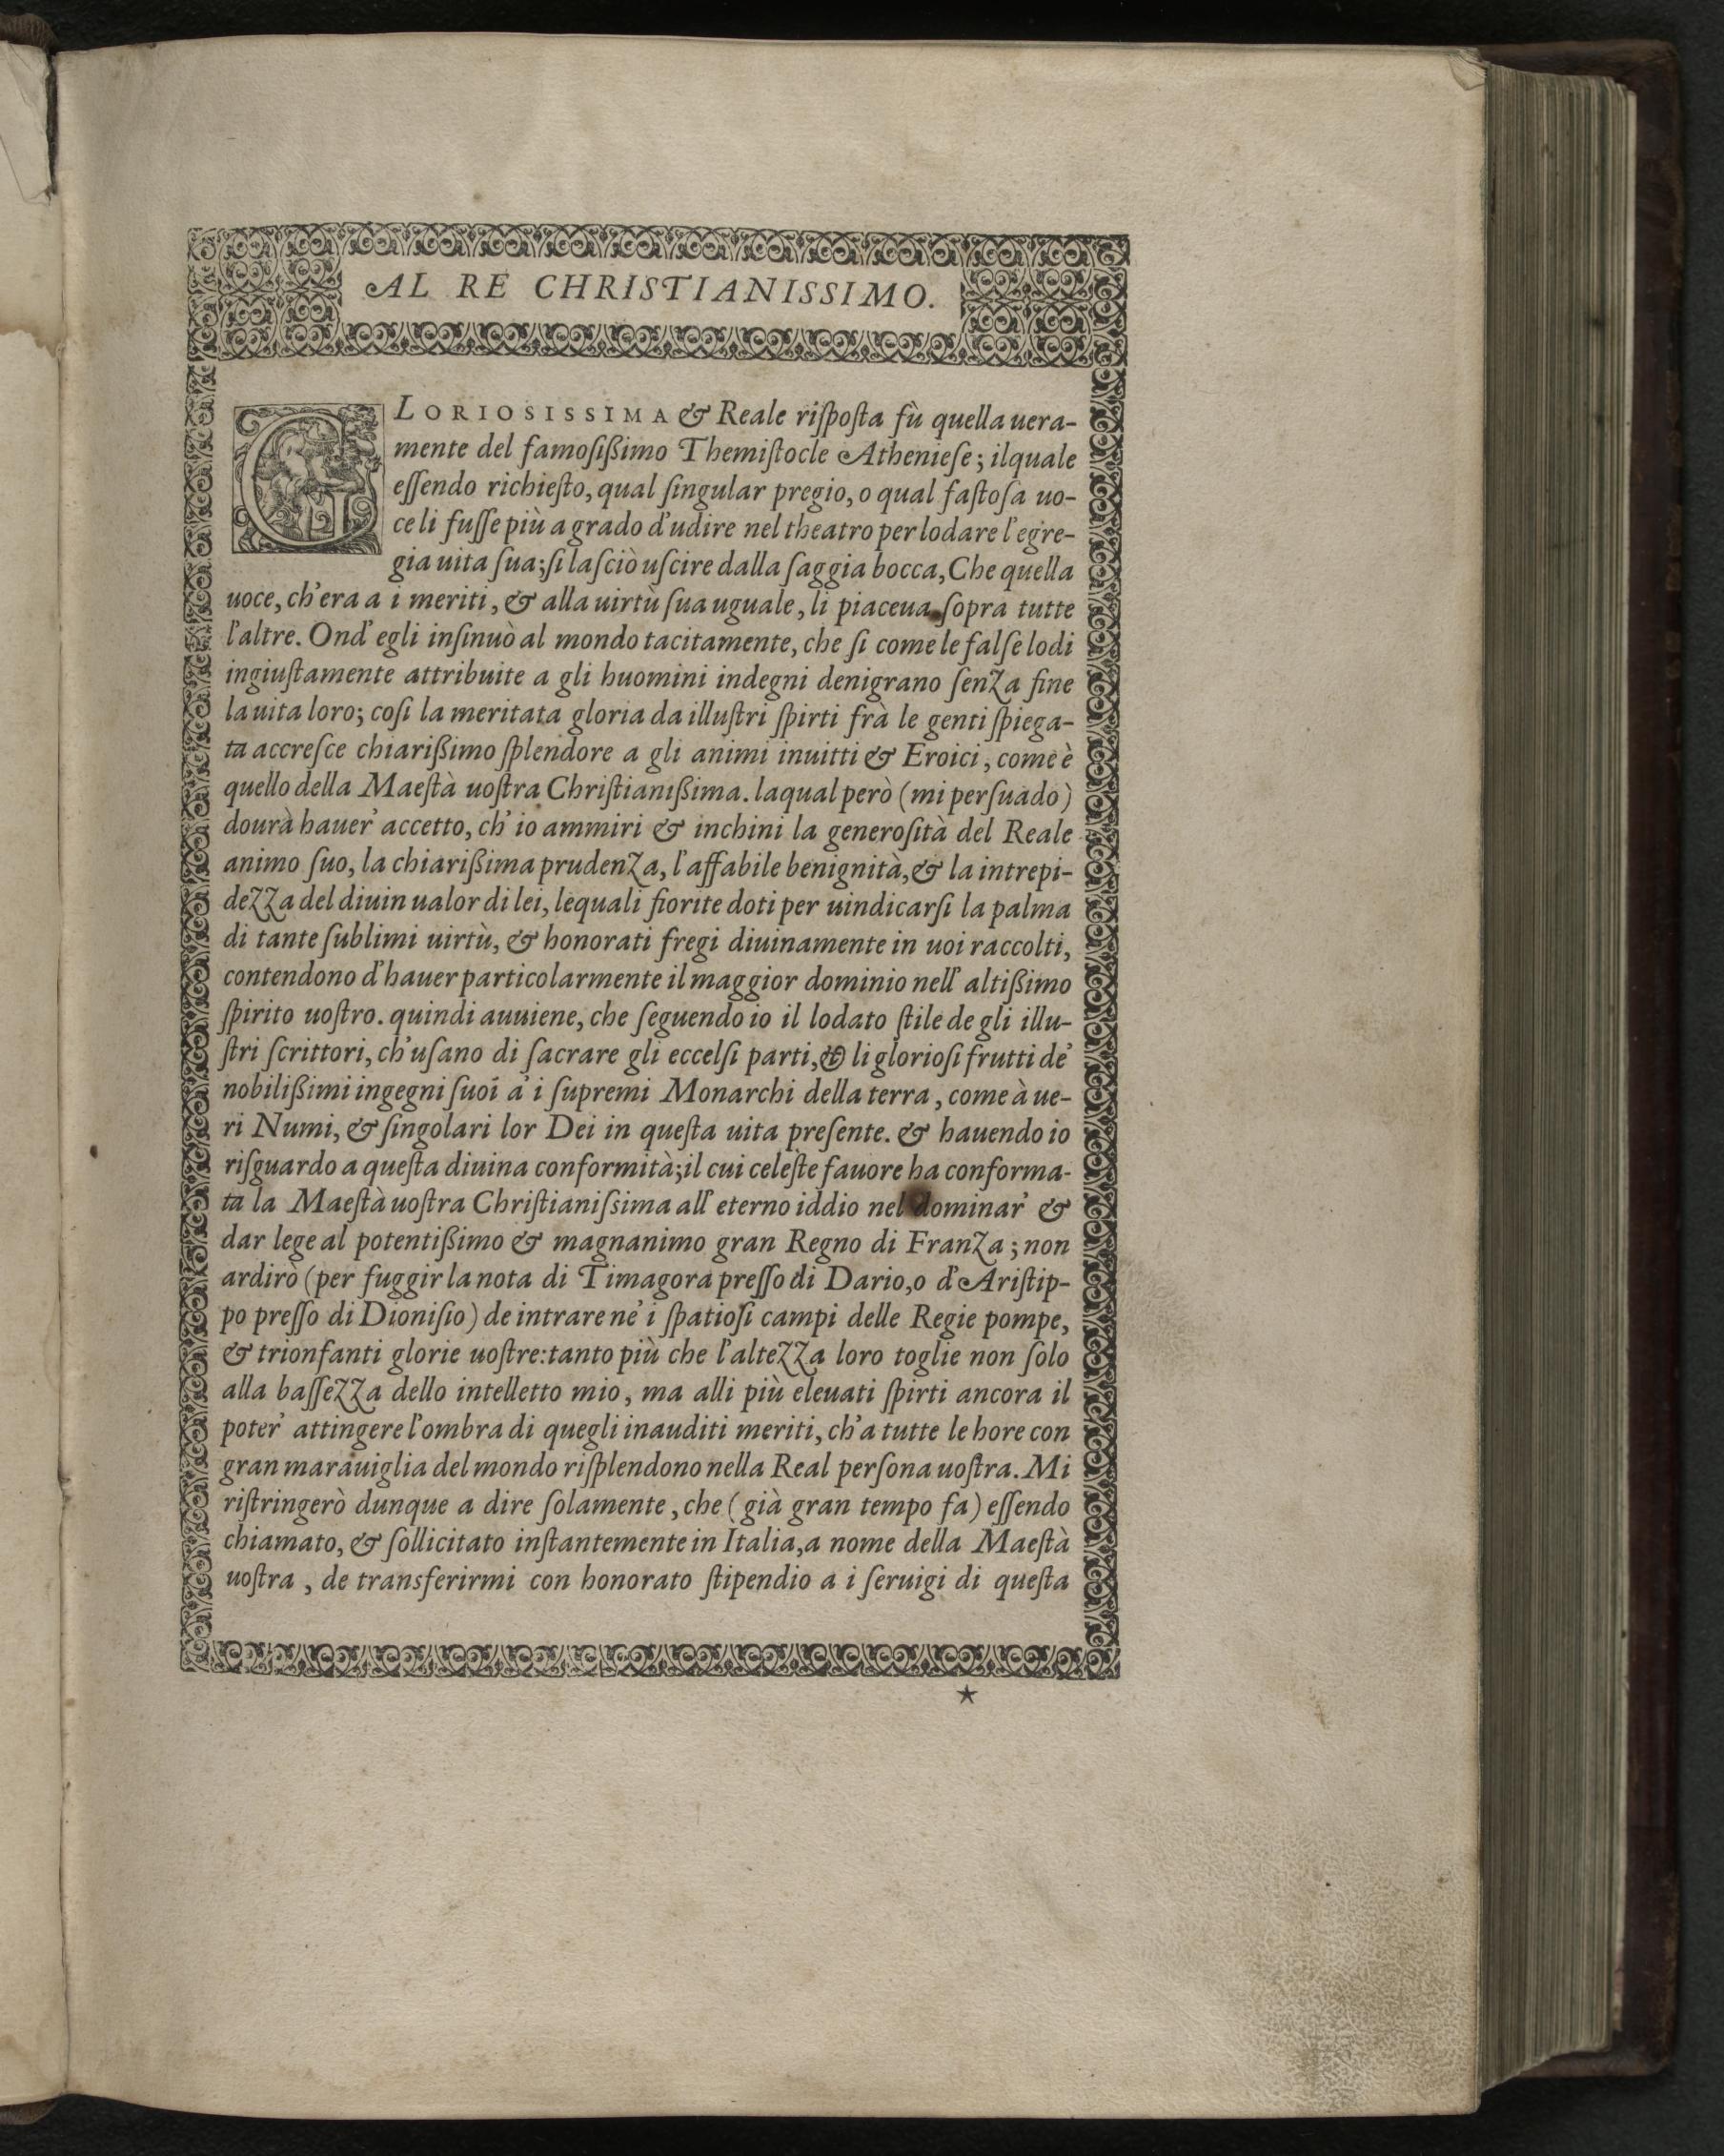 AL RE CHRISTIANISSIMO.
GLORIOSISSIMA & Reale riſpoſta fù quella uera-
mente del famoſiſſimo Themiſtocle Athenieſe; ilquale
eſſendo richieſto, qual ſingular pregio, o qual faſtoſa uo-
ce li fuſſe più a grado d'udire nel theatro per lodare l'egre-
gia uita ſua; ſi laſciò uſcire dalla ſaggia bocca, Che quella
uoce, ch'era a i meriti, & alla uirtù ſua uguale, li piaceua ſopra tutte
l'altre. Ond' egli inſinuò al mondo tacitamente, che ſi come le falſe lodi
ingiuſtamente attribuite a gli huomini indegni denigrano ſenza fine
la uita loro; coſi la meritata gloria da illuſtri ſpirti frà le genti ſpiega-
ta accreſce chiarißimo ſplendore a gli animi inuitti & Eroici, come è
quello della Maeſtà uoſtra Chriſtianißima. laqual però (mi perſuado)
dourà hauer' accetto, ch' io ammiri & inchini la generoſità del Reale
animo ſuo, la chiarißima prudenza, l'affabile benignità, & la intrepi-
dezza del diuin ualor di lei, lequali fiorite doti per uindicarſi la palma
di tante ſublimi uirtù, & honorati fregi diuinamente in uoi raccolti,
contendono d'hauer particolarmente il maggior dominio nell' altißimo
ſpirito uoſtro. quindi auuiene, che ſeguendo io il lodato ſtile de gli illu-
ſtri ſcrittori, ch'uſano di ſacrare gli eccelſi parti, & li glorioſi frutti de'
nobilißimi ingegni ſuoi a' i ſupremi Monarchi della terra, come à ue-
ri Numi, & ſingolari lor Dei in queſta uita preſente. & hauendo io
riſguardo a queſta diuina conformità; il cui celeſte fauore ha conforma-
ta la Maeſtà uoſtra Chriſtianiſsima all' eterno iddio nel dominar' &
dar lege al potentißimo & magnanimo gran Regno di Franza; non
ardirò (per fuggir la nota di Timagora preſſo di Dario, o d'Ariſtip-
po preſſo di Dioniſio) de intrare ne' i ſpatioſi campi delle Regie pompe,
& trionfanti glorie uoſtre: tanto più che l'altezza loro toglie non ſolo
alla baſſezza dello intelletto mio, ma alli più eleuati ſpirti ancora il
poter' attingere l'ombra di quegli inauditi meriti, ch'a tutte le hore con
gran marauiglia del mondo riſplendono nella Real perſona uoſtra. Mi
riſtringerò dunque a dire ſolamente, che (già gran tempo fa) eſſendo
chiamato, & ſollicitato inſtantemente in Italia, a nome della Maeſtà
uoſtra, de transferirmi con honorato ſtipendio a i ſeruigi di queſta
★